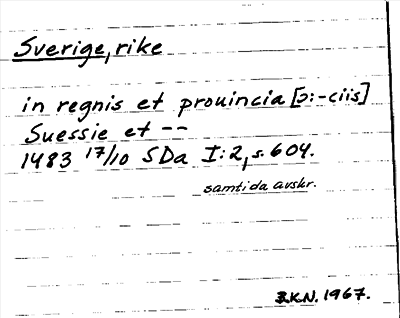 Sverige, rike
in regnis et prouincia [ɔ:-ciis]
Suessie et --
1483 17/10 SDa I:2, s. 604.
samtida avskr.
B.K.N. 1967.